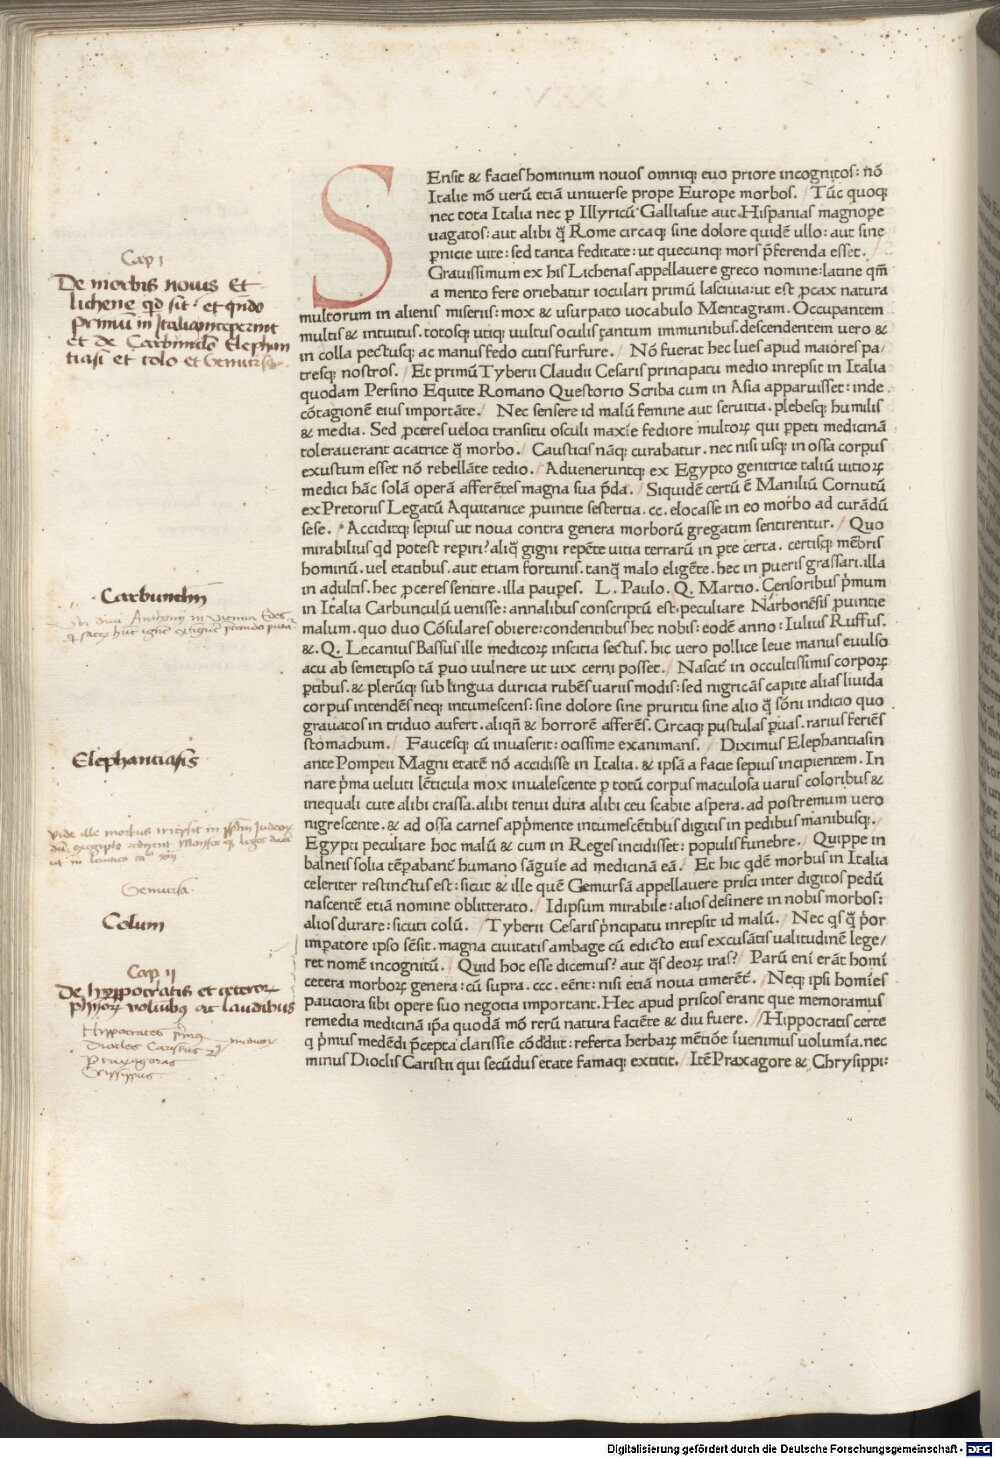 SEnsit & facies hominum nouos omniq; euo priore incognitos: nō
Italie mō verū etiā universe prope Europe morbos. / Tūc quoq;
nec tota Italia nec ꝑ Illyricū Galliasue aut Hispanias magnoꝑe
uagatos: aut alibi ꝗ̃ Rome circaq; sine dolore quidē ullo: aut sine
ꝑnicie uite: sed tanta feditate: ut quecunq; mors p̄ferenda esset. /
Grauissimum ex his Lichenas appellauere greco nomine: latine qm̄
a mento fere oriebatur ioculari primū lasciuia: ut est ꝓcax natura
multorum in alienis miseriis: mox & usurpato uocabulo Mentagram. Occupantem
multis & intuitus. totosq; utiq; uultus oculis tantum immunibus. descendentem uero &
in colla pectusq; ac manus fedo cutis furfure. / Nō fuerat hec lues apud maiores pa/
tresq; nostros. / Et primū Tyberii Claudii Cesaris principatu medio inrepsit in Italia
quodam Persino Equite Romano Questorio Scriba cum in Asia apparuisset: inde
cōtagionē eius importāte. / Nec sensere id malū femine aut seruitia. plebesq; humilis
& media. Sed ꝓceres ueloci transitu osculi maxīe fediore multoꝝ qui ꝑpeti medicinā
tolerauerant cicatrice ꝗ̃ morbo. / Causticis nāq; curabatur. nec nisi usq; in ossa corpus
exustum esset nō rebellāte tedio. / Adueneruntq; ex Egypto genitrice taliū uitioꝝ
medici hāc solā operā afferētes magna sua p̄da. / Siquidē certū ē Maniliū Cornutū
ex Pretoriis Legatū Aquitanice ꝓuintie sestertia. cc. elocasse in eo morbo ad curādū
sese. / Acciditq; sepius ut noua contra genera morborū gregatim sentirentur. / Quo
mirabilius qd potest reꝑiri? aliꝗ̃ gigni repēte uitia terrarū in ꝑte certa. certisq; mēbris
hominū. uel etatibus. aut etiam fortunis. tanꝗ̃ malo eligēte. hec in pueris grassari. illa
in adultis. hec ꝓceres sentire. illa pauꝑes. L. Paulo. Q. Martio. Censoribus p̄mum
in Italia Carbunculū uenisse: annalibus conscriptū est. peculiare Narbonēsis ꝓuintie
malum. quo duo Cōsulares obiere: condentibus hec nobis: eodē anno: Iulius Ruffus.
&. Q. Lecanius Bassus ille medicoꝝ inscitia sectus. hic uero pollice leue manus euulso
acu ab semetipso tā ꝑuo uulnere ut uix cerni posset. / Nascit̄ in occultissimis corporꝝ
ꝑtibus. & plerūq; sub lingua duricia rubēs uariis modis: sed nigricās capite alias liuida
corpus intendēs neq; intumescens: sine dolore sine pruritu sine alio ꝗ̃ sōni indicio quo
grauatos in triduo aufert. aliqn̄ & horrorē afferēs. Circaq; pustulas ꝑuas. rarius feriēs
stomachum. / Faucesq; cū inuaserit: ocissime exanimans. / Diximus Elephantiasin
ante Pompeii Magni etatē nō accidisse in Italia. & ipsā a facie sepius incipientem. In
nare p̄ma ueluti lēticula mox inualescente ꝑ totū corpus maculosa uariis coloribus &
inequali cute alibi crassa. alibi tenui dura alibi ceu scabie aspera. ad postremum uero
nigrescente. & ad ossa carnes app̄mente intumescētibus digitis in pedibus manibusq;. /
Egypti peculiare hoc malū & cum in Reges incidisset: populis funebre. / Quippe in
balneis solia tēꝑabant̄ humano sāguīe ad medicinā eā. / Et hic qdē morbus in Italia
celeriter restinctus est: sicut & ille quē Gemursā appellauere prisci inter digitos pedū
nascentē etiā nomine oblitterato. / Idipsum mirabile: alios desinere in nobis morbos:
alios durare: sicuti colū. / Tyberii Cesaris p̄ncipatu inrepsit id malū. / Nec qs ꝗ̃ p̄or
impatore ipso sēsit. magna ciuitatis ambage cū edicto eius excusātis ualitudinē lege/
ret nomē incognitū. / Quid hoc esse dicemus? aut ꝗ̄s deoꝝ iras? / Parū eni erāt homī
cetera morboꝝ genera: cū supra. ccc. eēnt: nisi etiā noua timerēt̄. / Neq; ipsi homīes
pauciora sibi opere suo negotia important. Hec apud priscos erant que memoramus
remedia medicinā ip̄a quodā mō rerū natura faciēte & diu fuere. // Hippocratis certe
q p̄mus medēdi p̄cepta clarissīe cōdidit: referta herbaꝝ mētiōe īuenimus uolumīa. nec
minus Dioclis Caristii qui secūdus etate famaq; extitit. / Itē Praxagore & Chrysippi:
Cap i
De morbis novis et
lichene qd sit et qn̄do
primū in Italia
et de Carbunculo Elephan
tiasi et colo et Gemursa
Carbunculus
Elephantiasis
Gemursa
Colum
Cap ii
De hyppocratis et ceteroꝝ
ac laudibus
Hyppocrates p̄mus
Diocles Caristius 2us
Praxagoras
Crisippus
Digitalisierung gefördert durch die Deutsche Forschungsgemeinschaft - DFG